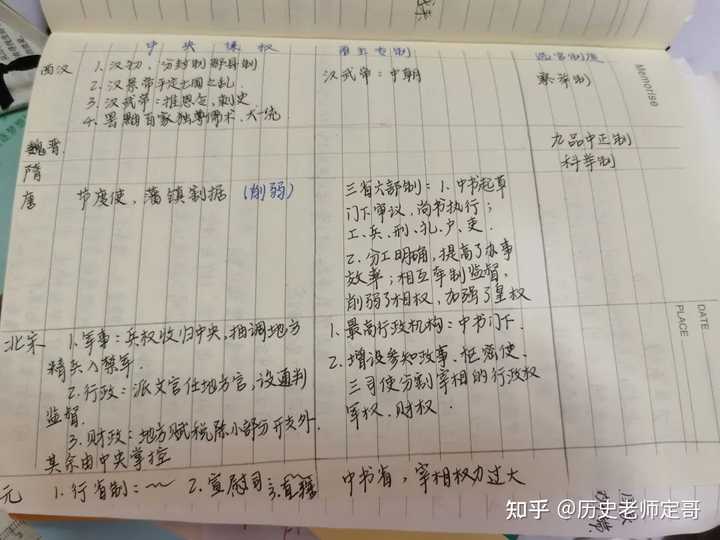 中央集权 君主专制 选官制度
西汉 1. 汉初，分封制郡县制 汉武帝：中朝 察举制
2. 汉景帝平定七国之乱
3. 汉武帝：推恩令，刺史
4. 罢黜百家独尊儒术，大一统
魏晋. 九品中正制
隋 科举制
唐 节度使，藩镇割据（削弱） 三省六部制：1、中书起草
门下审议，尚书执行；
工、兵、刑、礼、户、吏.
2. 分工明确，提高了办事
效率；相互牵制监督，
削弱了相权，加强了皇权
北宋 1. 军事：兵权收归中央，抽调地方 1. 最高行政机构：中书门下.
精兵入禁军. 2. 增设参知政事、枢密使、
2. 行政：派文官任地方官，设通判 三司使分割宰相的行政权
监督. 军权、财权.
3. 财政：地方赋税除小部分开支外，
其余由中央掌控
元 1. 行省制：~~ 2. 宣慰司 3. 直辖 中书省，宰相权力过大
Memorise
DATE
PLACE
知乎 @历史老师定哥